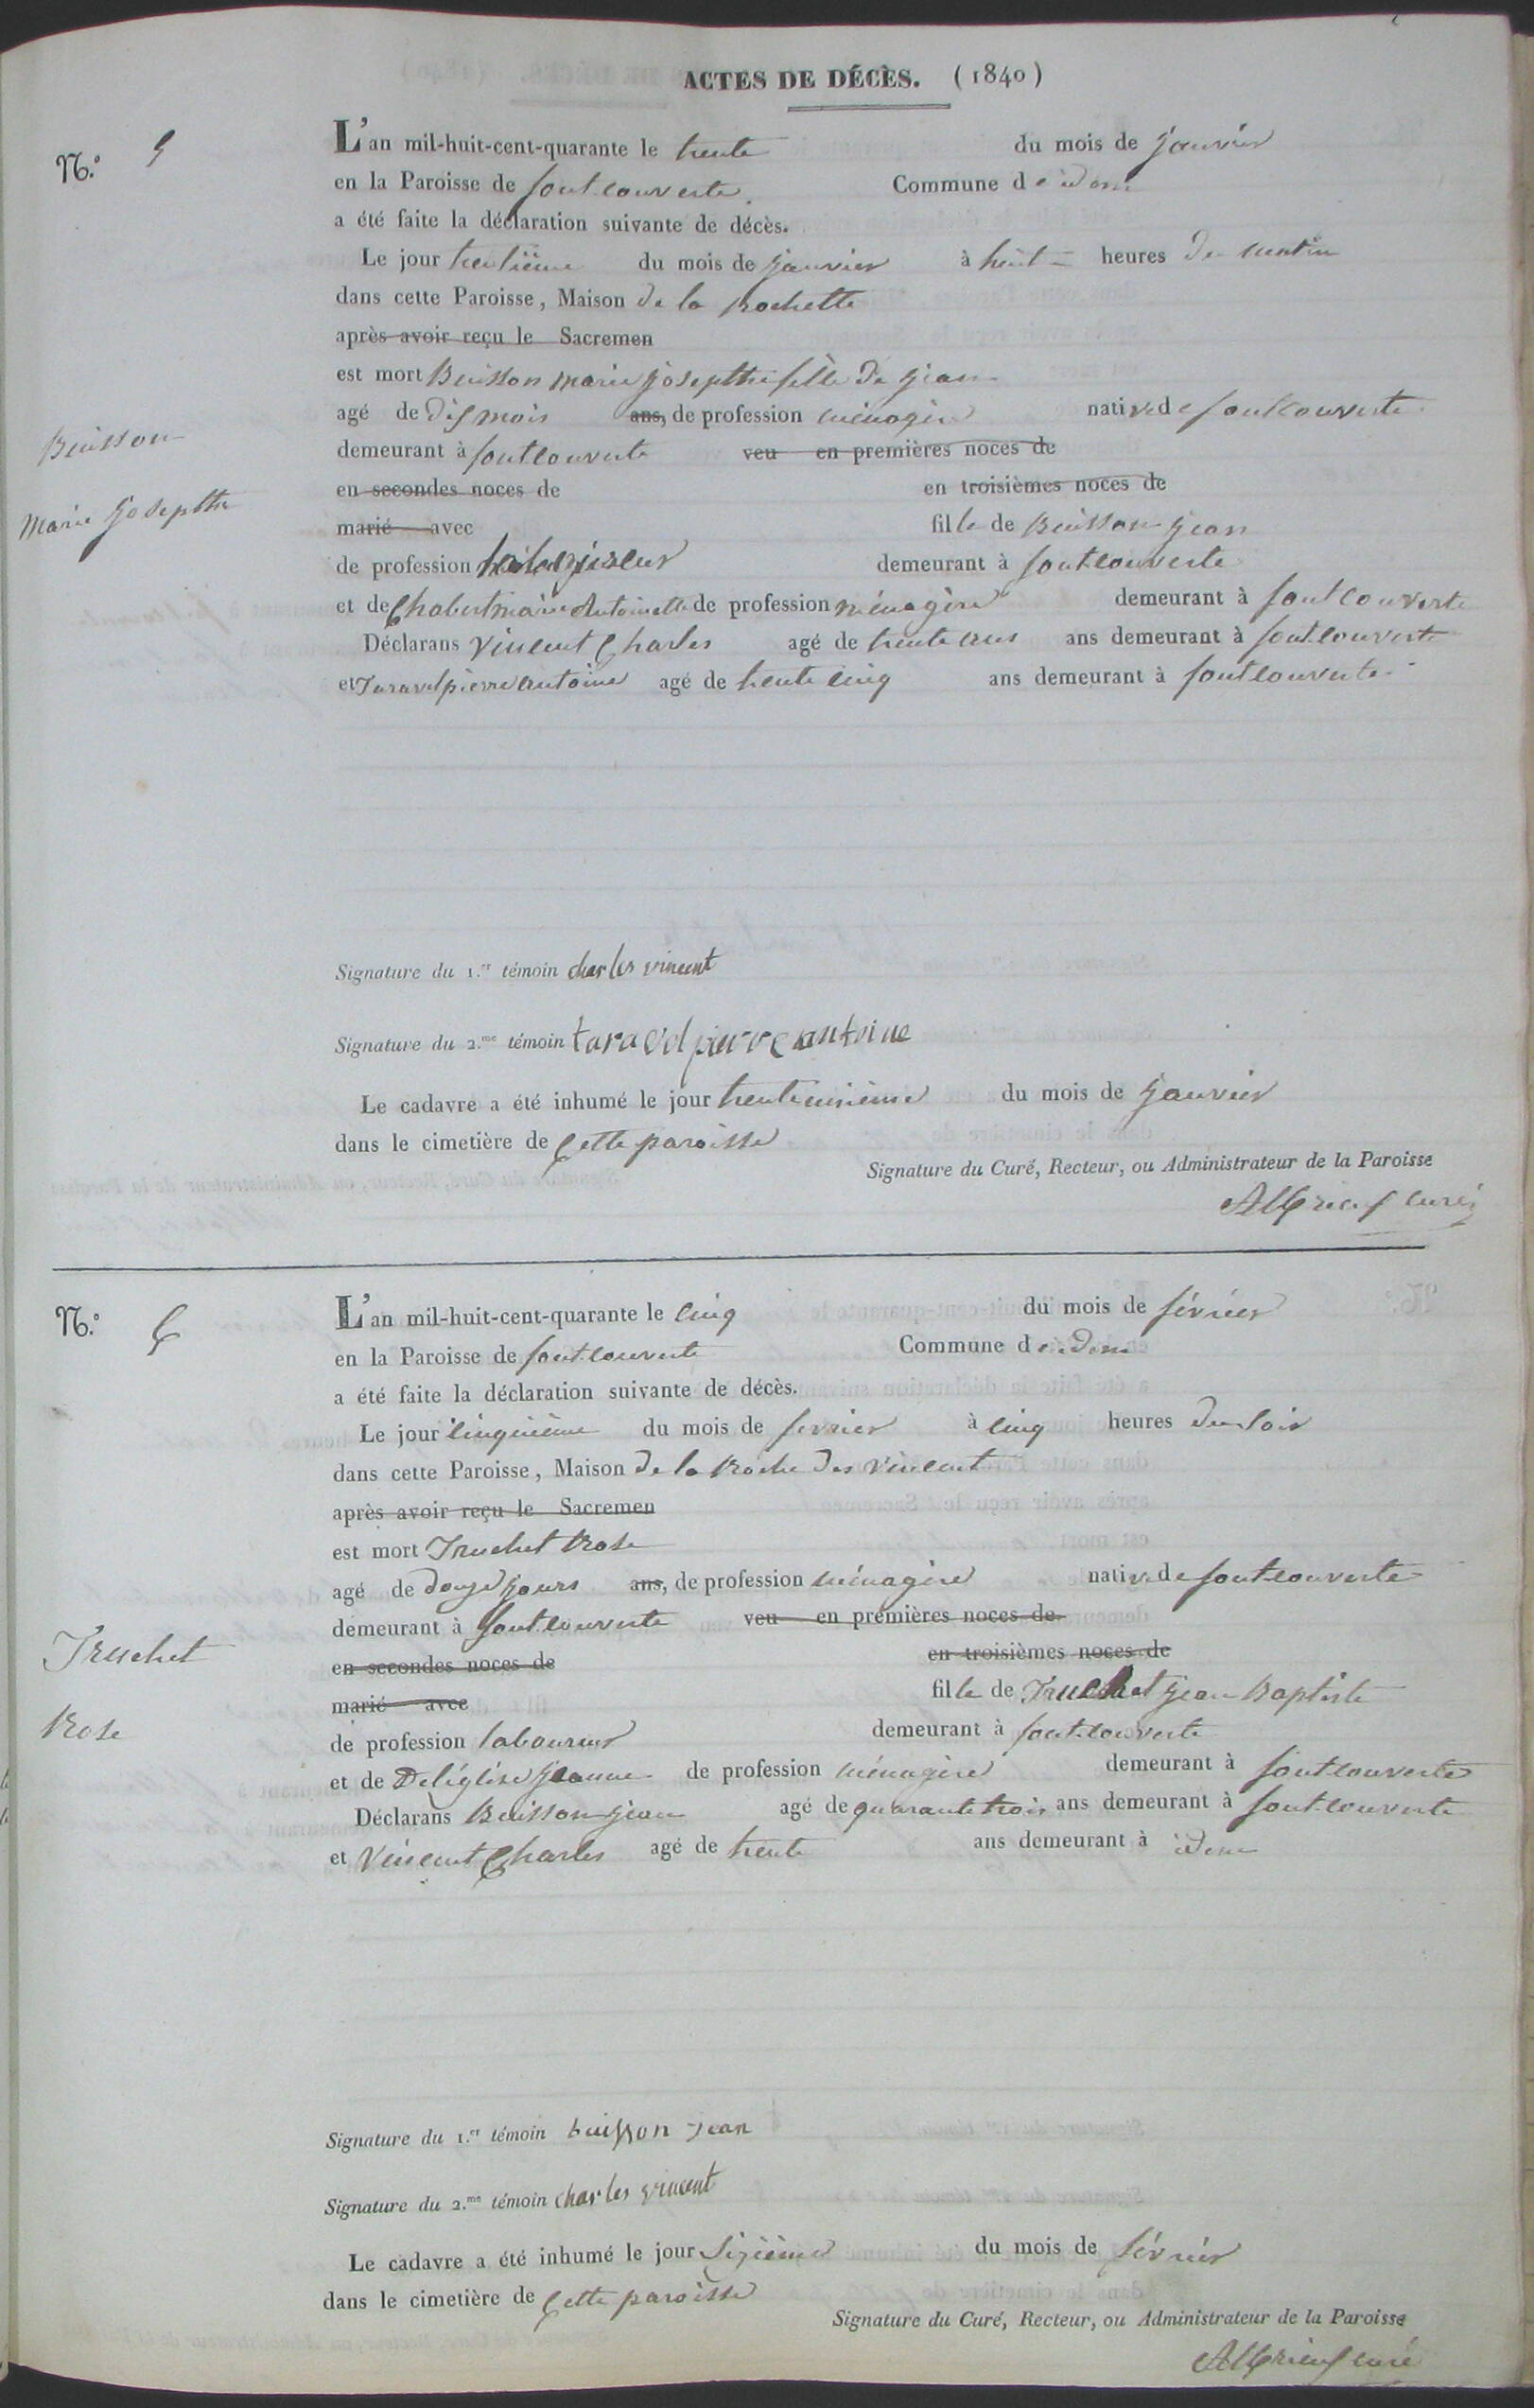 ACTES DE DÉCÈS. (1840)
N.º 5
L'an mil-huit-cent-quarante le trente du mois de janvier
en la Paroisse de fontcouverte. Commune d e idem
a été faite la déclaration suivante de décès.
Le jour trentième du mois de janvier à huit heures du matin
dans cette Paroisse, Maison de la Rochette
après avoir reçu le Sacremen
est mort Buisson marie josepthe fille de jean
agé de dix mois ans, de profession ménagère native de fontcouverte
Buisson
demeurant à fontcouverte veu en premières noces de
en secondes noces de en troisièmes noces de
Marie josepthe
marié avec fille de Buisson jean
de profession demeurant à fontcouverte
et de Chabert marie Antoinette de profession ménagère demeurant à fontcouverte
Déclarans Vincent Charles agé de trente ans ans demeurant à fontcouverte
et Taravel pierre antoine agé de trente cinq ans demeurant à fontcouverte
Signature du 1.er témoin charles vincent
Signature du 2.me témoin taravel pierre antoine
Le cadavre a été inhumé le jour trente unième du mois de janvier
dans le cimetière de Cette paroisse
Signature du Curé, Recteur, ou Administrateur de la Paroisse
Albrieux curé
N.º 6
L'an mil-huit-cent-quarante le cinq du mois de février
en la Paroisse de fontcouverte Commune d e idem
a été faite la déclaration suivante de décès.
Le jour cinquième du mois de fevrier à cinq heures du soir
dans cette Paroisse, Maison de la Roche des Vincent
après avoir reçu le Sacremen
est mort Truchet Rose
agé de douze jours ans, de profession ménagère native de fontcouverte
demeurant à fontcouverte veu en premières noces de
Truchet
en secondes noces de en troisièmes noces de
marié avec fille de Truchet jean Baptiste
Rose
de profession laboureur demeurant à fontcouverte
et de Deléglise jeanne de profession ménagère demeurant à fontcouverte
Déclarans Buisson jean agé de quarante trois ans demeurant à fontcouverte
et Vincent Charles agé de trente ans demeurant à idem
Signature du 1.er témoin buisson jean
Signature du 2.me témoin charles vincent
Le cadavre a été inhumé le jour sixième du mois de février
dans le cimetière de Cette paroisse
Signature du Curé, Recteur, ou Administrateur de la Paroisse
Albrieux curé